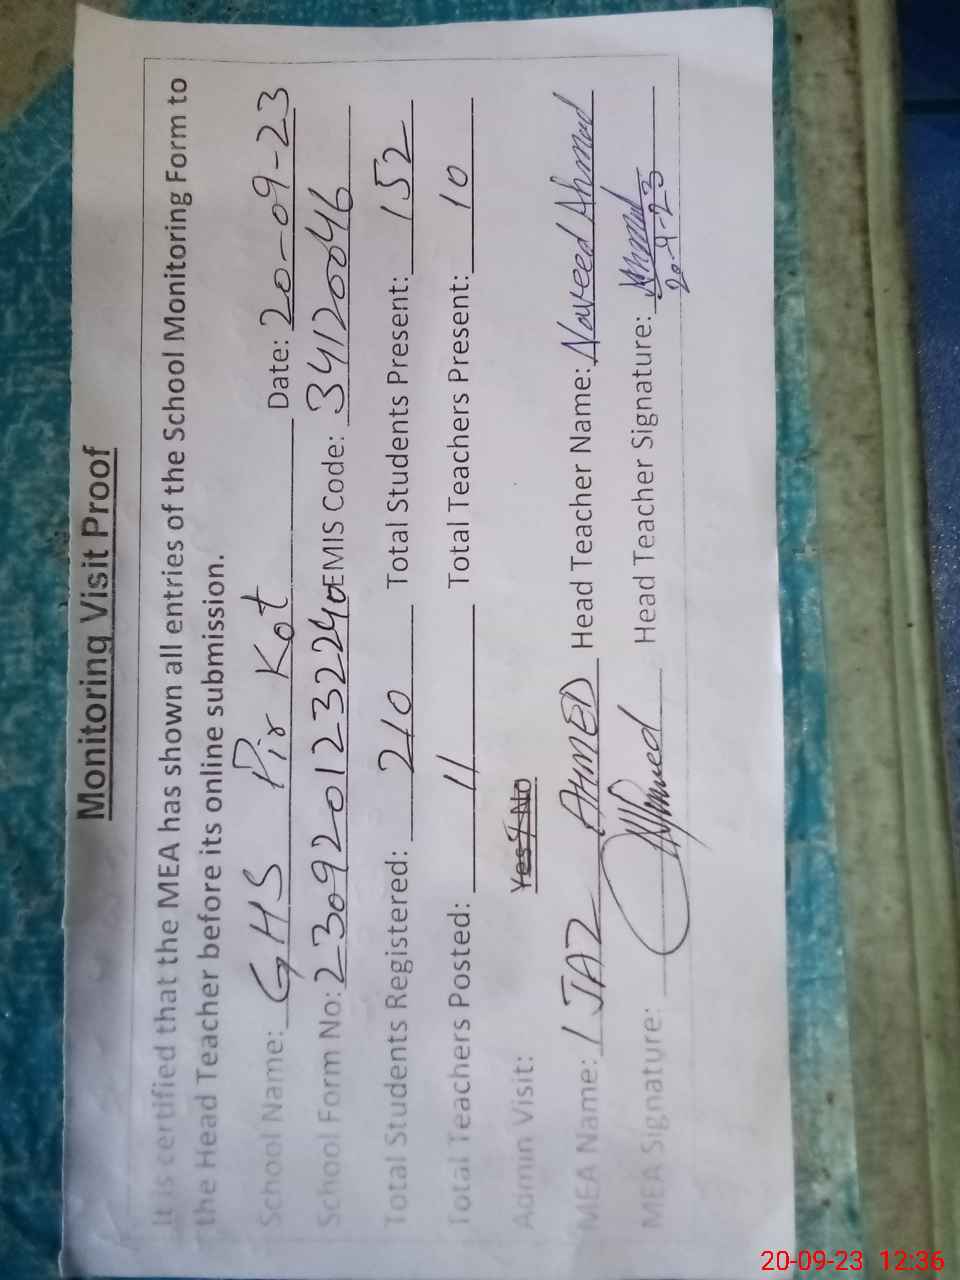 Monitoring Visit Proof
It is certified that the MEA has shown all entries of the School Monitoring Form to
the Head Teacher before its online submission.
School Name: GHS Pir Kot Date: 20-09-23
School Form No: 230920123224 EMIS Code: 34120046
Total Students Registered: 210 Total Students Present: 152
Total Teachers Posted: 11 Total Teachers Present: 10
Admin Visit: Yes / No
MEA Name: IJAZ AHMED Head Teacher Name: Naveed Ahmad
MEA Signature: Ahmed Head Teacher Signature: Ahmad
20-9-23
20-09-23 12:36